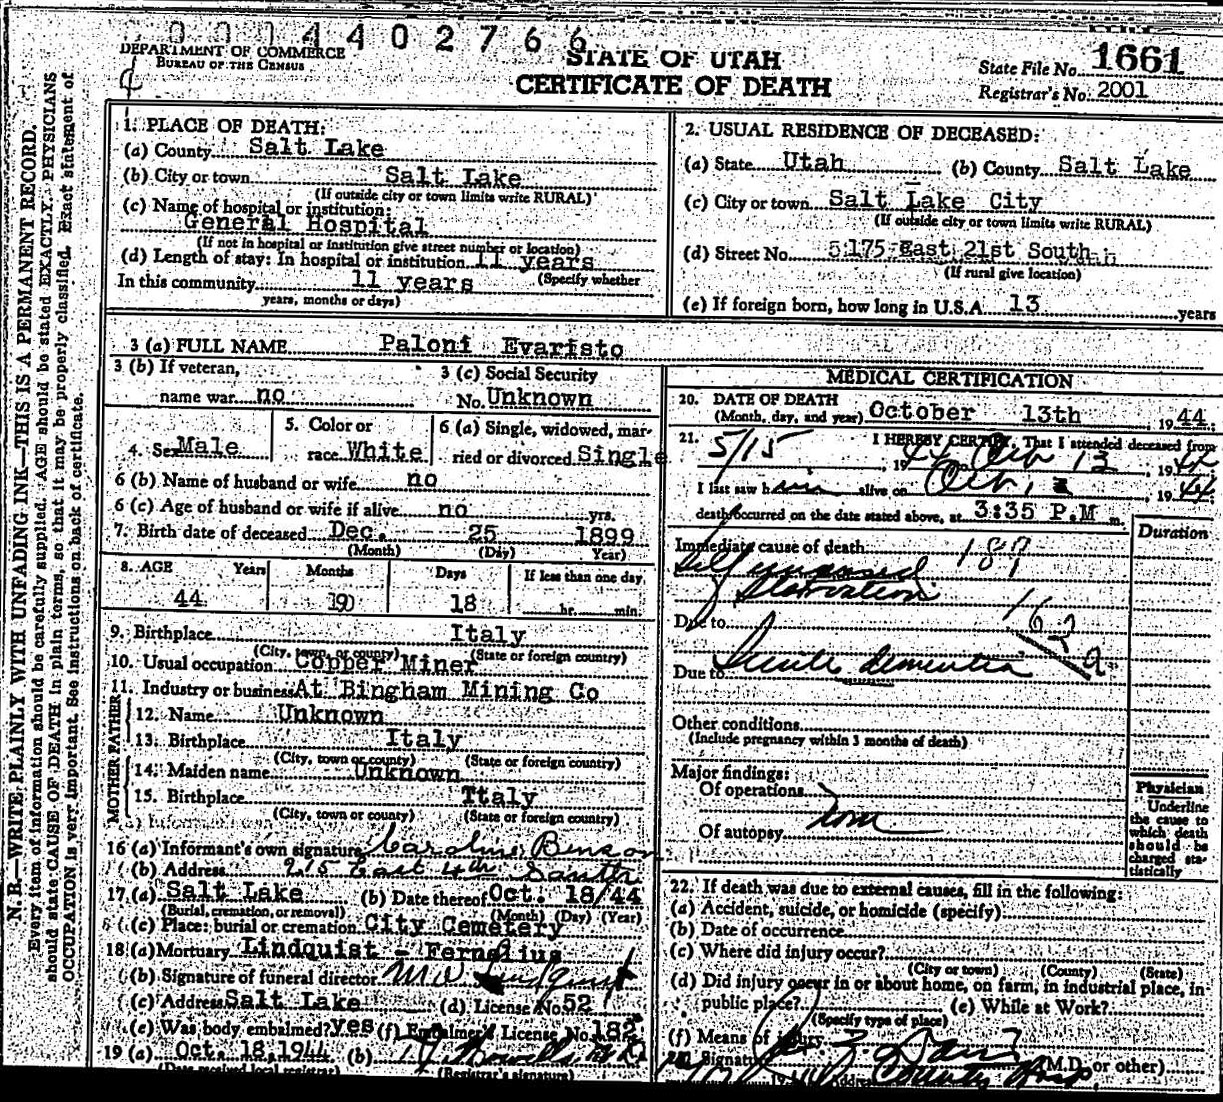 0 0 1 4 4 0 2 7 6 6
DEPARTMENT OF COMMERCE
BUREAU OF THE CENSUS
STATE OF UTAH
CERTIFICATE OF DEATH
State File No. 1661
Registrar's No. 2001
N. B.—WRITE PLAINLY WITH UNFADING INK—THIS IS A PERMANENT RECORD.
Every item of information should be carefully supplied. AGE should be stated EXACTLY. PHYSICIANS
should state CAUSE OF DEATH in plain terms, so that it may be properly classified. Exact statement of
OCCUPATION is very important. See instructions on back of certificate.
1. PLACE OF DEATH:
(a) County Salt Lake
(b) City or town Salt Lake
(If outside city or town limits write RURAL)
(c) Name of hospital or institution:
General Hospital
(If not in hospital or institution give street number or location)
(d) Length of stay: In hospital or institution 11 years
(Specify whether
In this community 11 years
years, months or days)
2. USUAL RESIDENCE OF DECEASED:
(a) State Utah (b) County Salt Lake
(c) City or town Salt Lake City
(If outside city or town limits write RURAL)
(d) Street No. 5175 East 21st South
(If rural give location)
(e) If foreign born, how long in U.S.A. 13 years
3 (a) FULL NAME Paloni Evaristo
3 (b) If veteran,
name war no
3 (c) Social Security
No. Unknown
4. Sex Male
5. Color or
race White
6 (a) Single, widowed, mar-
ried or divorced Single
6 (b) Name of husband or wife no
6 (c) Age of husband or wife if alive no yrs.
7. Birth date of deceased Dec. 25 1899
(Month) (Day) Year)
8. AGE Years Months Days If less than one day
44 9 18 hr. min.
9. Birthplace Italy
(City, town, or county) (State or foreign country)
10. Usual occupation Copper Miner
11. Industry or business At Bingham Mining Co
FATHER
12. Name Unknown
13. Birthplace Italy
(City, town or county) (State or foreign country)
MOTHER
14. Maiden name Unknown
15. Birthplace Italy
(City, town or county) (State or foreign country)
16 (a) Informant's own signature Caroline Benson
(b) Address 215 East 4th South
17 (a) Salt Lake (b) Date thereof Oct. 18/44
(Burial, cremation, or removal) (Month) (Day) (Year)
(c) Place: burial or cremation City Cemetery
18 (a) Mortuary Lindquist - Fernelius
(b) Signature of funeral director
(c) Address Salt Lake (d) License No. 52
(e) Was body embalmed? yes (f) Embalmer's License No. 182
19 (a) Oct. 18,1944 (b)
(Date received local registrar) (Registrar's signature)
MEDICAL CERTIFICATION
20. DATE OF DEATH
(Month, day, and year) October 13th 1944
21. I HEREBY CERTIFY, That I attended deceased from
5/15, 1944 Oct 13, 1944
I last saw him alive on Oct, 1944
death occurred on the date stated above, at 3:35 P.M m.
Duration
Immediate cause of death 189
Self imposed
Starvation
Due to 162
a
Due to Senile dementia
Other conditions
(Include pregnancy within 3 months of death)
Major findings:
Of operations
Of autopsy none
Physician
Underline
the cause to
which death
should be
charged sta-
tistically
22. If death was due to external causes, fill in the following:
(a) Accident, suicide, or homicide (specify)
(b) Date of occurrence
(c) Where did injury occur?
(City or town) (County) (State)
(d) Did injury occur in or about home, on farm, in industrial place, in
public place? (e) While at Work?
(Specify type of place)
(f) Means of injury
Signature (M.D. or other)
19 44 Address County Hosp.